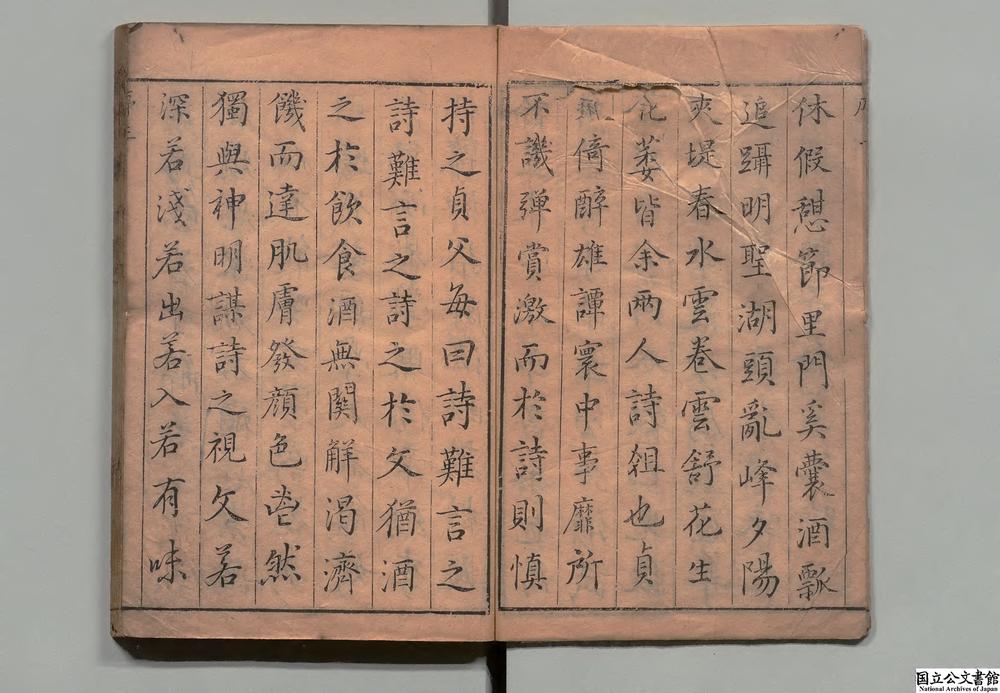 休假憇節里門奚囊酒瓢
追躡明聖湖頭亂峰夕陽
爽堤春水雲卷雲舒花生
花萎皆余兩人詩俎也貞
倚醉雄譚寰中事靡所
不譏彈賞激而於詩則慎
持之貞父每曰詩難言之
詩難言之詩之於文猶酒
之於飲食酒無關解渴濟
饑而達肌膚發顔色盎然
獨與神明謀詩之視文若
深若淺若出若入若有味
国立公文書館
National Archives of Japan